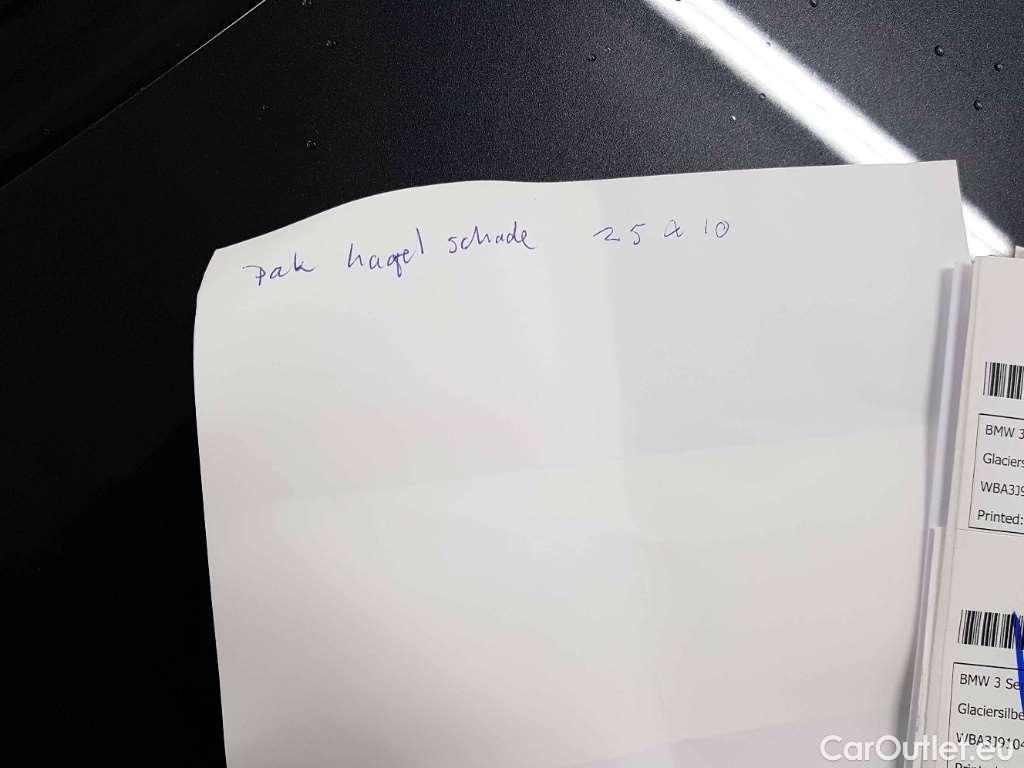 Dak hagel schade 25 a 10
BMW 3
Glaciers
WBA3J9
Printed:
BMW 3 Se
Glaciersilbe
WBA3J9104
CarOutlet.eu